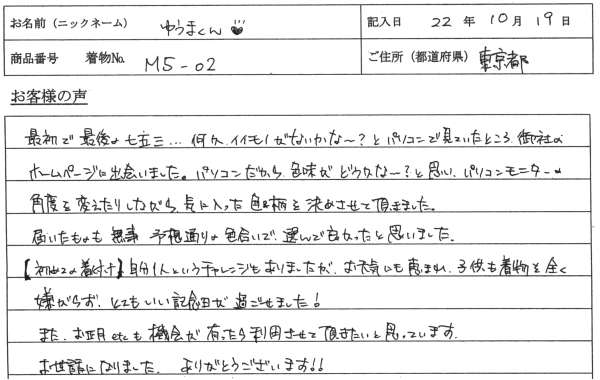 お名前（ニックネーム） ゆうまくん 記入日 22 年 10 月 19 日
商品番号 着物No. M5-02 ご住所（都道府県） 東京都
お客様の声
最初で最後の七五三…何かイイモノがないかな〜？とパソコンで見ていたところ、御社の
ホームページに出会いました。パソコンだから、色味がどうかな〜？と思い、パソコンモニターの
角度を変えたりしながら、気に入った色と柄を決めさせて頂きました。
届いたものも無事 予想通りの色合いで、選んで良かったと思いました。
【初めての着付け】自分1人というチャレンジもありましたが、お天気にも恵まれ、子供も着物を全く
嫌がらず、とてもいい記念日が過ごせました！
また、お正月etcも機会が有ったら利用させて頂きたいと思っています。
お世話になりました。 ありがとうございます!!